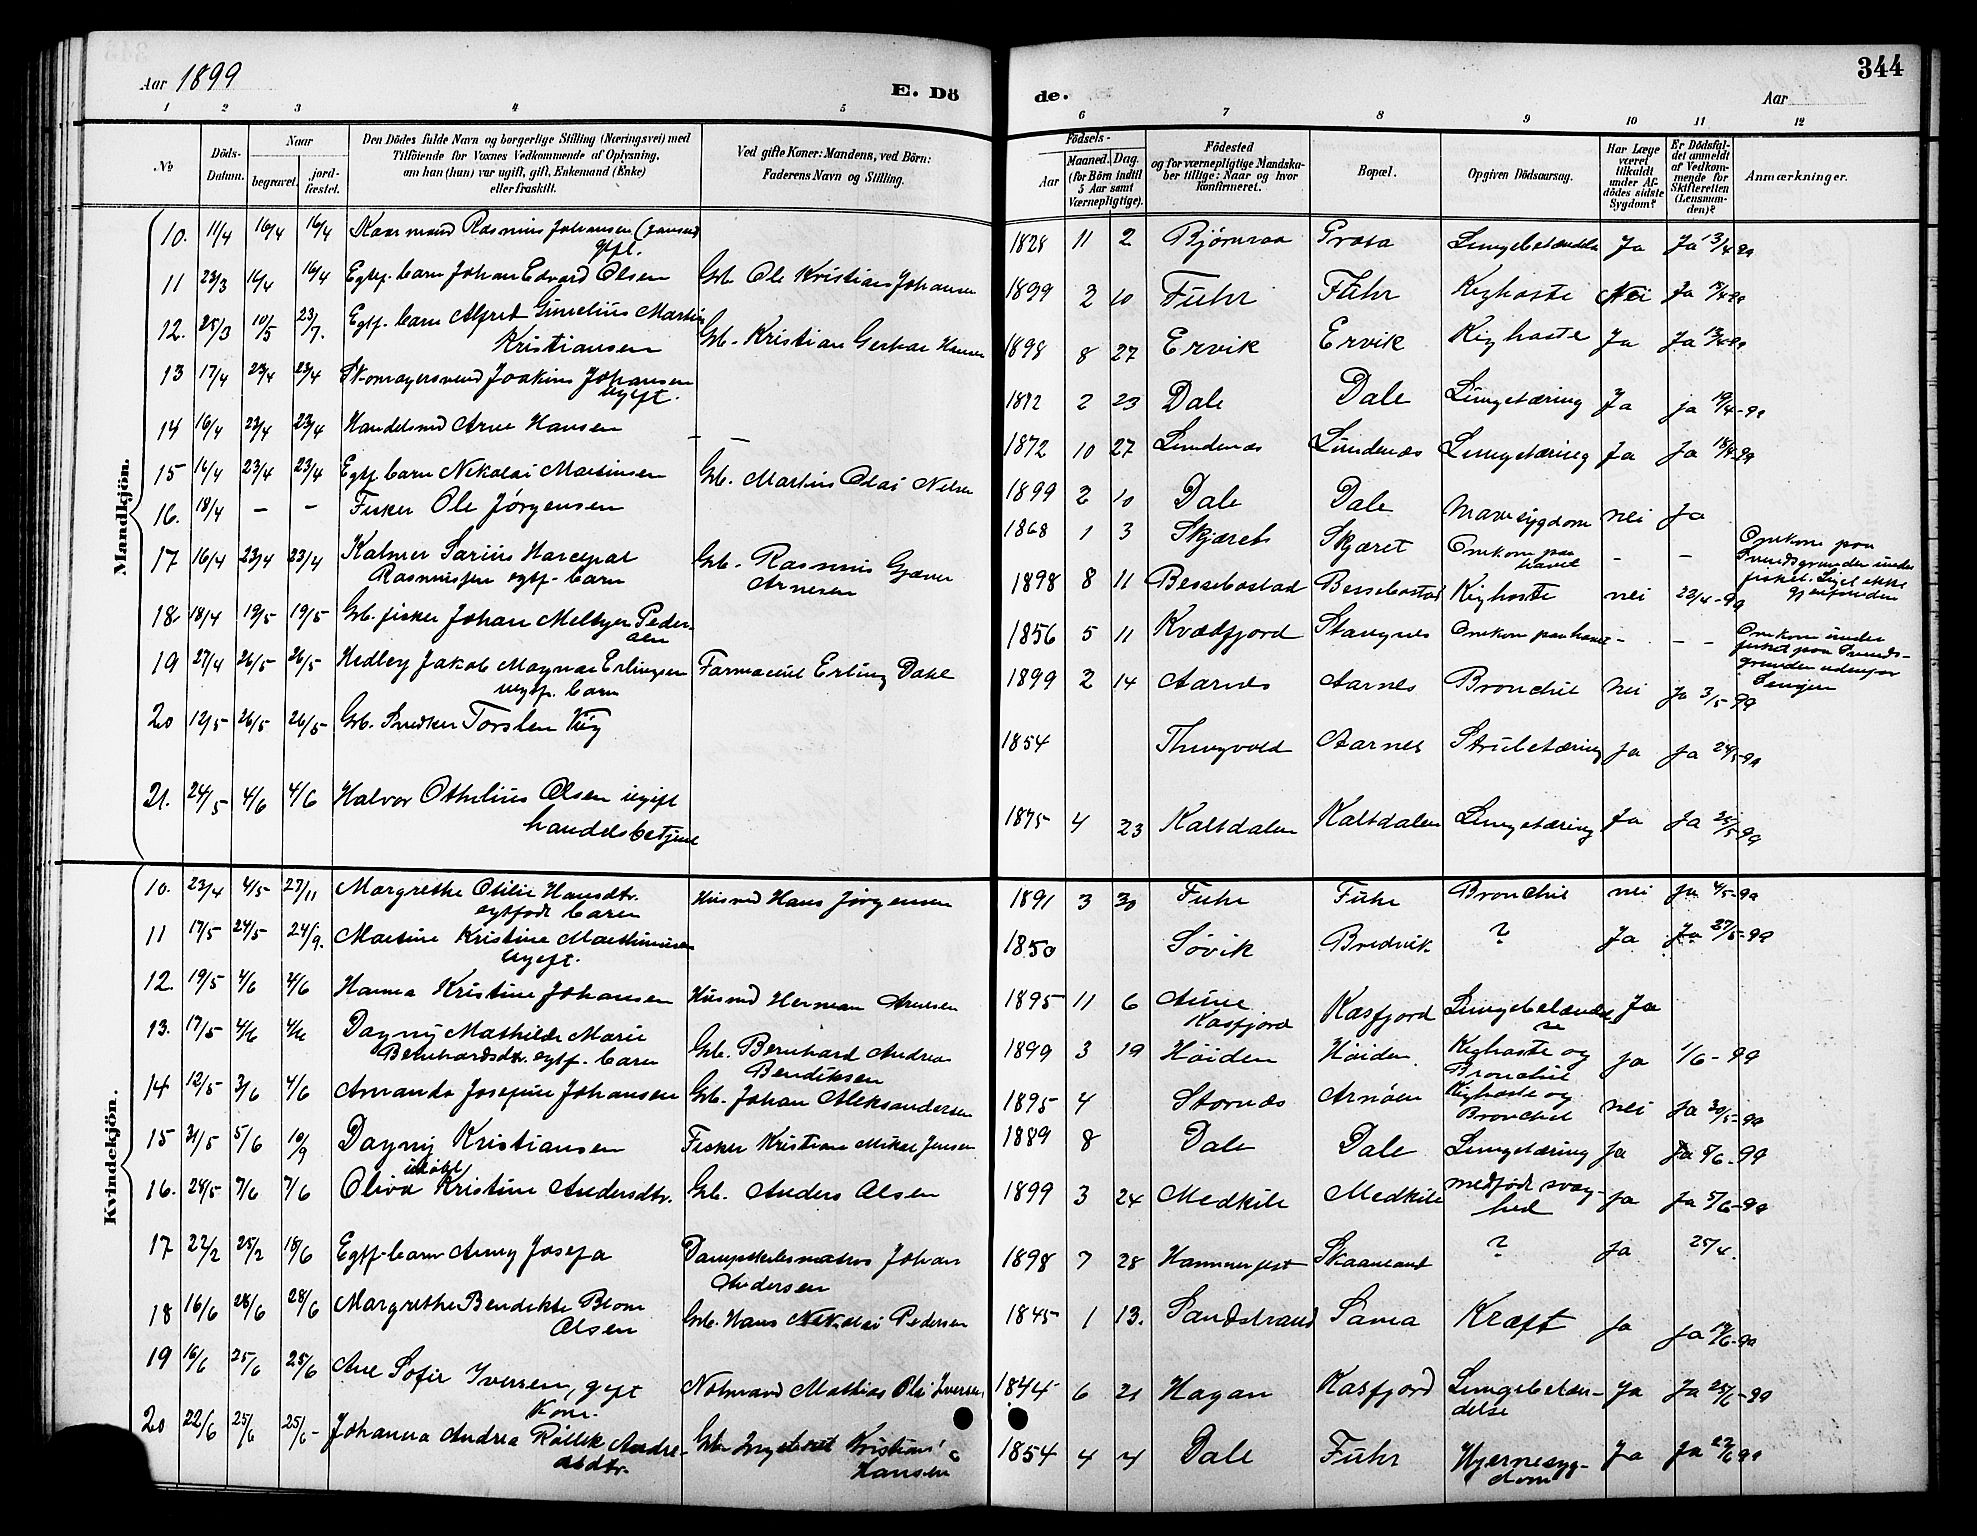 Aar 1899
E. Dö
de.
344
Aar
1 2 3 4 5 6 7 8 9 10 11 12
№
Döds-
Datum.
Naar
begravet.
jord-
fæstet.
Den Dödes fulde Navn og borgerlige Stilling (Næringsvei) med
Tilföiende for Voxnes Vedkommende af Oplysning,
om han (hun) var ugift, gift, Enkemand (Enke)
eller fraskilt.
Ved gifte Koner: Mandens, ved Börn:
Faderens Navn og Stilling.
Födsels-
Aar
Maaned.
Dag.
(for Börn indtil
5 Aar samt
Værnepligtige).
Födested
og for værnepligtige Mandska-
ber tillige: Naar og hvor
konfirmeret.
Bopæl.
Opgiven Dödsaarsag.
Har Læge
været
tilkaldt
under Af-
dödes sidste
Sygdom?
Er Dödsfal-
det anmeldt
af Vedkom-
mende for
Skifteretten
(Lensman-
den)?
Anmærkninger.
Mandkjön.
10. 11/4 16/4 16/4 Kaarmand Rasmus Johansen
gift. 1828 11 2 Grasa Ja Ja 13/4 99
11 23/3 16/4 16/4 Egtf. barn Johan Edvard Olsen Grb. Ole Kristian Johansen 1899 2 10 Fuhr Fuhr Kighoste Nei Ja
12. 25/3 10/5 23/7. Egtf. barn Alfret
Kristiansen Grb. Kristian 1898 8 27 Ervik Ervik Kighoste Ja Ja
13 17/4 23/4 23/4 Joakim Johansen
ugift. 2 23 Dale Dale Lungetæring Ja ja 19/4-99
14 16/4 23/4 23/4 Arne Hansen - - 1872 10 27 Lundenæs Lundenæs Lungetæring Ja Ja 18/4-99
15 16/4 23/4 23/4 Egtf. barn Nikolai Martinsen Grb. Martin Olai Nelsen 1899 2 10 Dale Dale Mavesygdom nei ja
16. 18/4 - - Fisker Ole Jörgensen 1868 1 3 Skjæret Skjæret Omkom paa
havet - - Omkom paa
under
fisket. Liget ikke
gjenfunden
17 16/4 23/4 23/4
Rasmussen egtf. barn Grb. Rasmus
Arnesen 1898 8 11 Bessebostad Bessebostad Kighoste nei 23/4-99
18 18/4 19/5 19/5 Grb. fisker Johan Meltyer Peder-
sen 1856 5 11 Kvædfjord Stangnes Omkom paa havet - - - Omkom under
fisket paa Svends-
grunden udenfor
Senjen
19 27/4 26/5 26/5 Hedley Jakob Magnar Erlingsen
uegtf. barn Farmaceut Erling Dahl 1899 2 14 Aarnes Aarnes Bronchit nei Ja 3/5-99
20 12/5 26/5 26/5 Grb. Snedker Torsten 1854 Thingvold Aarnes Strubetæring Ja Ja 24/5-99
21. 24/5 4/6 4/6 Halvor Othelius Olsen ugift
handelsbetjent 1875 4 23 Kaltdalen Kaltdalen Lungetæring Ja Ja 99
Kvindekjön.
10. 23/4 4/5 23/11 Margrethe Otilie Hansdtr.
egtfödt barn Husmd Hans Jörgensen 1891 3 30 Fuhr Fuhr Bronchit nei ja 4/5-99
11 17/5 24/5 24/9. Martine Kristine
Ugift. 1850 Sövik Bredvik ? Ja Ja 27/5-99
12. 19/5 4/6 4/6 Hanna Kristine Johansen Husmd Herman Arnesen 1895 11 6
Kasfjord Kasfjord Lungebetændel-
se Ja
13. 17/5 4/6 4/6 Dagny Mathilde Marie
Bernhardsdtr. egtf. barn Grb. Bernhard Andreas
Bendiksen 1899 3 19 Höiden Höiden. Kighoste og
Bronchit Ja 1/6-99
14 12/5 3/6 4/6 Amanda Josefine Johansen Grb. Johan Aleksandersen 1895 4 Stornæs Arnöen Kighoste og
Bronchit nei Ja 30/5-99
15 31/5 5/6 10/9 Dagny Kristiansen Fisker Kristian Mikal Jensen 1889 8 Dale Dale Lungetæring Ja Ja 5/6-99
16. 24/5 7/6 7/6 Oliva Kristine Andersdtr. Grb. Anders Olsen 1899 3 24 Medkile Medkile medfödt svag-
hed Ja Ja 5/6-99
17 22/2 25/2 18/6 Egtf. barn Anny Josefa Dampskibsmatros Johan
Andersen 1898 7 28 Hammerfest Skaanland ? Ja 25/4.
18 16/6 28/6 28/6 Margrethe Bendikte Blom
Olsen Grb. Hans Nikolai Pedersen 1845 1 13. Sandstrand Sama Kræft Ja Ja 19/6-99
19 16/6 25/6 25/6 Ane Sofie Iversen, gift
Kone. Notmand Mathias Ole Iversen 1844 6 21 Hagan Kasfjord Lungebetæn-
delse Ja Ja 25/6-99
20 22/6 25/6 25/6 Johanna Andrea Röllek Andre-
asdtr. Grb. Ingebret Kristian
Hansen 1854 4 4 Dale Fuhr Hjernesyg-
dom Ja Ja 99